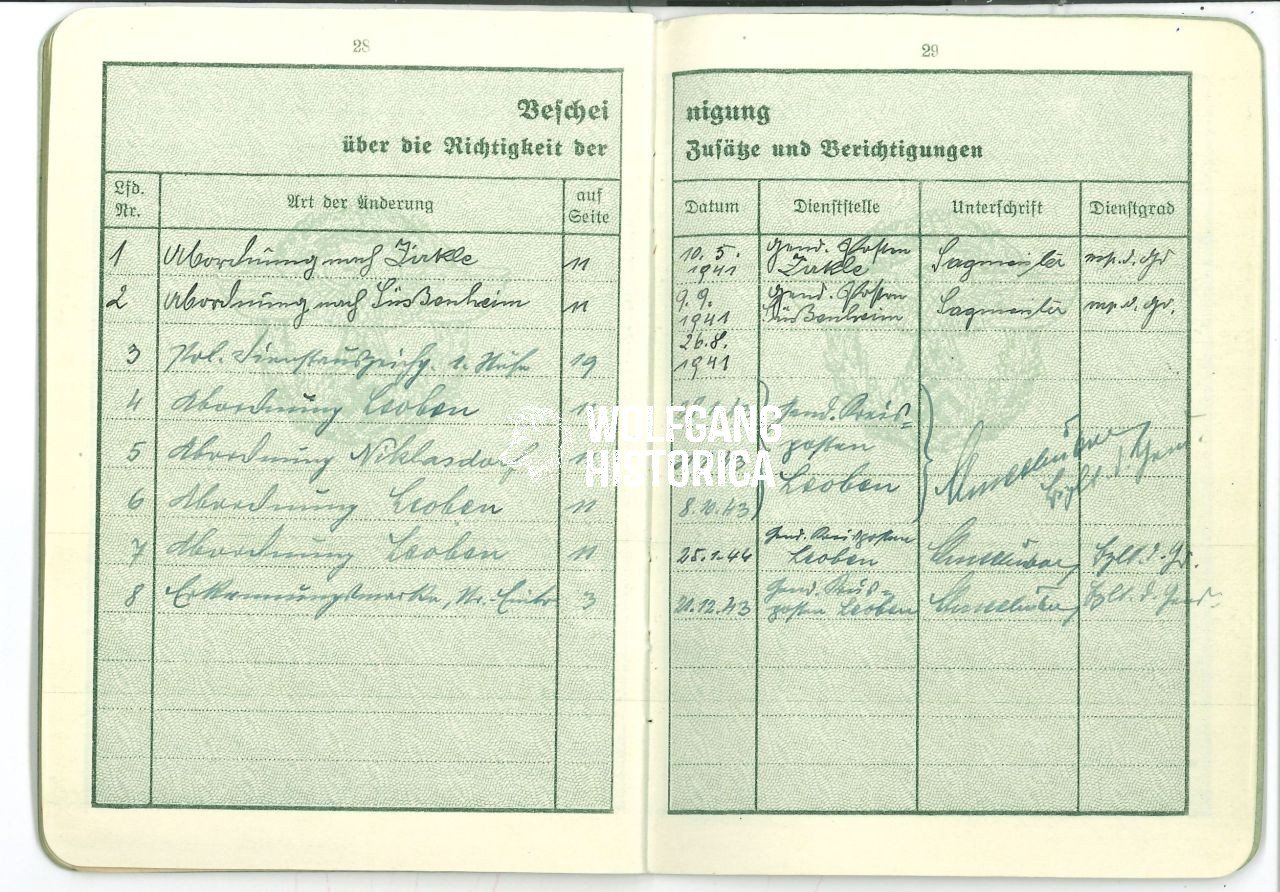 28
Beschei
über die Richtigkeit der
Lfd. Nr.
Art der Änderung
auf Seite
1 Abordnung nach Zirkle 11
2 Abordnung nach Süßenheim 11
3 Pol. Dienstauszeichg. 19
4 Abordnung Leoben
5 Abordnung Niklasdorf
6 Abordnung Leoben 11
7 Abordnung Leoben 11
8 Erkennungsmarke, Nr. 3
29
nigung
Zusätze und Berichtigungen
Datum
Dienststelle
Unterschrift
Dienstgrad
10.5. 1941 Gend. Posten Zirkle Sagmeister
9.9. 1941 Gend. Posten Süßenheim Sagmeister
26.8. 1941
Gend. Kreis-
posten
Leoben
8.10.43
25.1.44 Gend. Kreisposten Leoben
21.12.43 Gend. Kreis- posten Leoben
WOLFGANG
HISTORICA